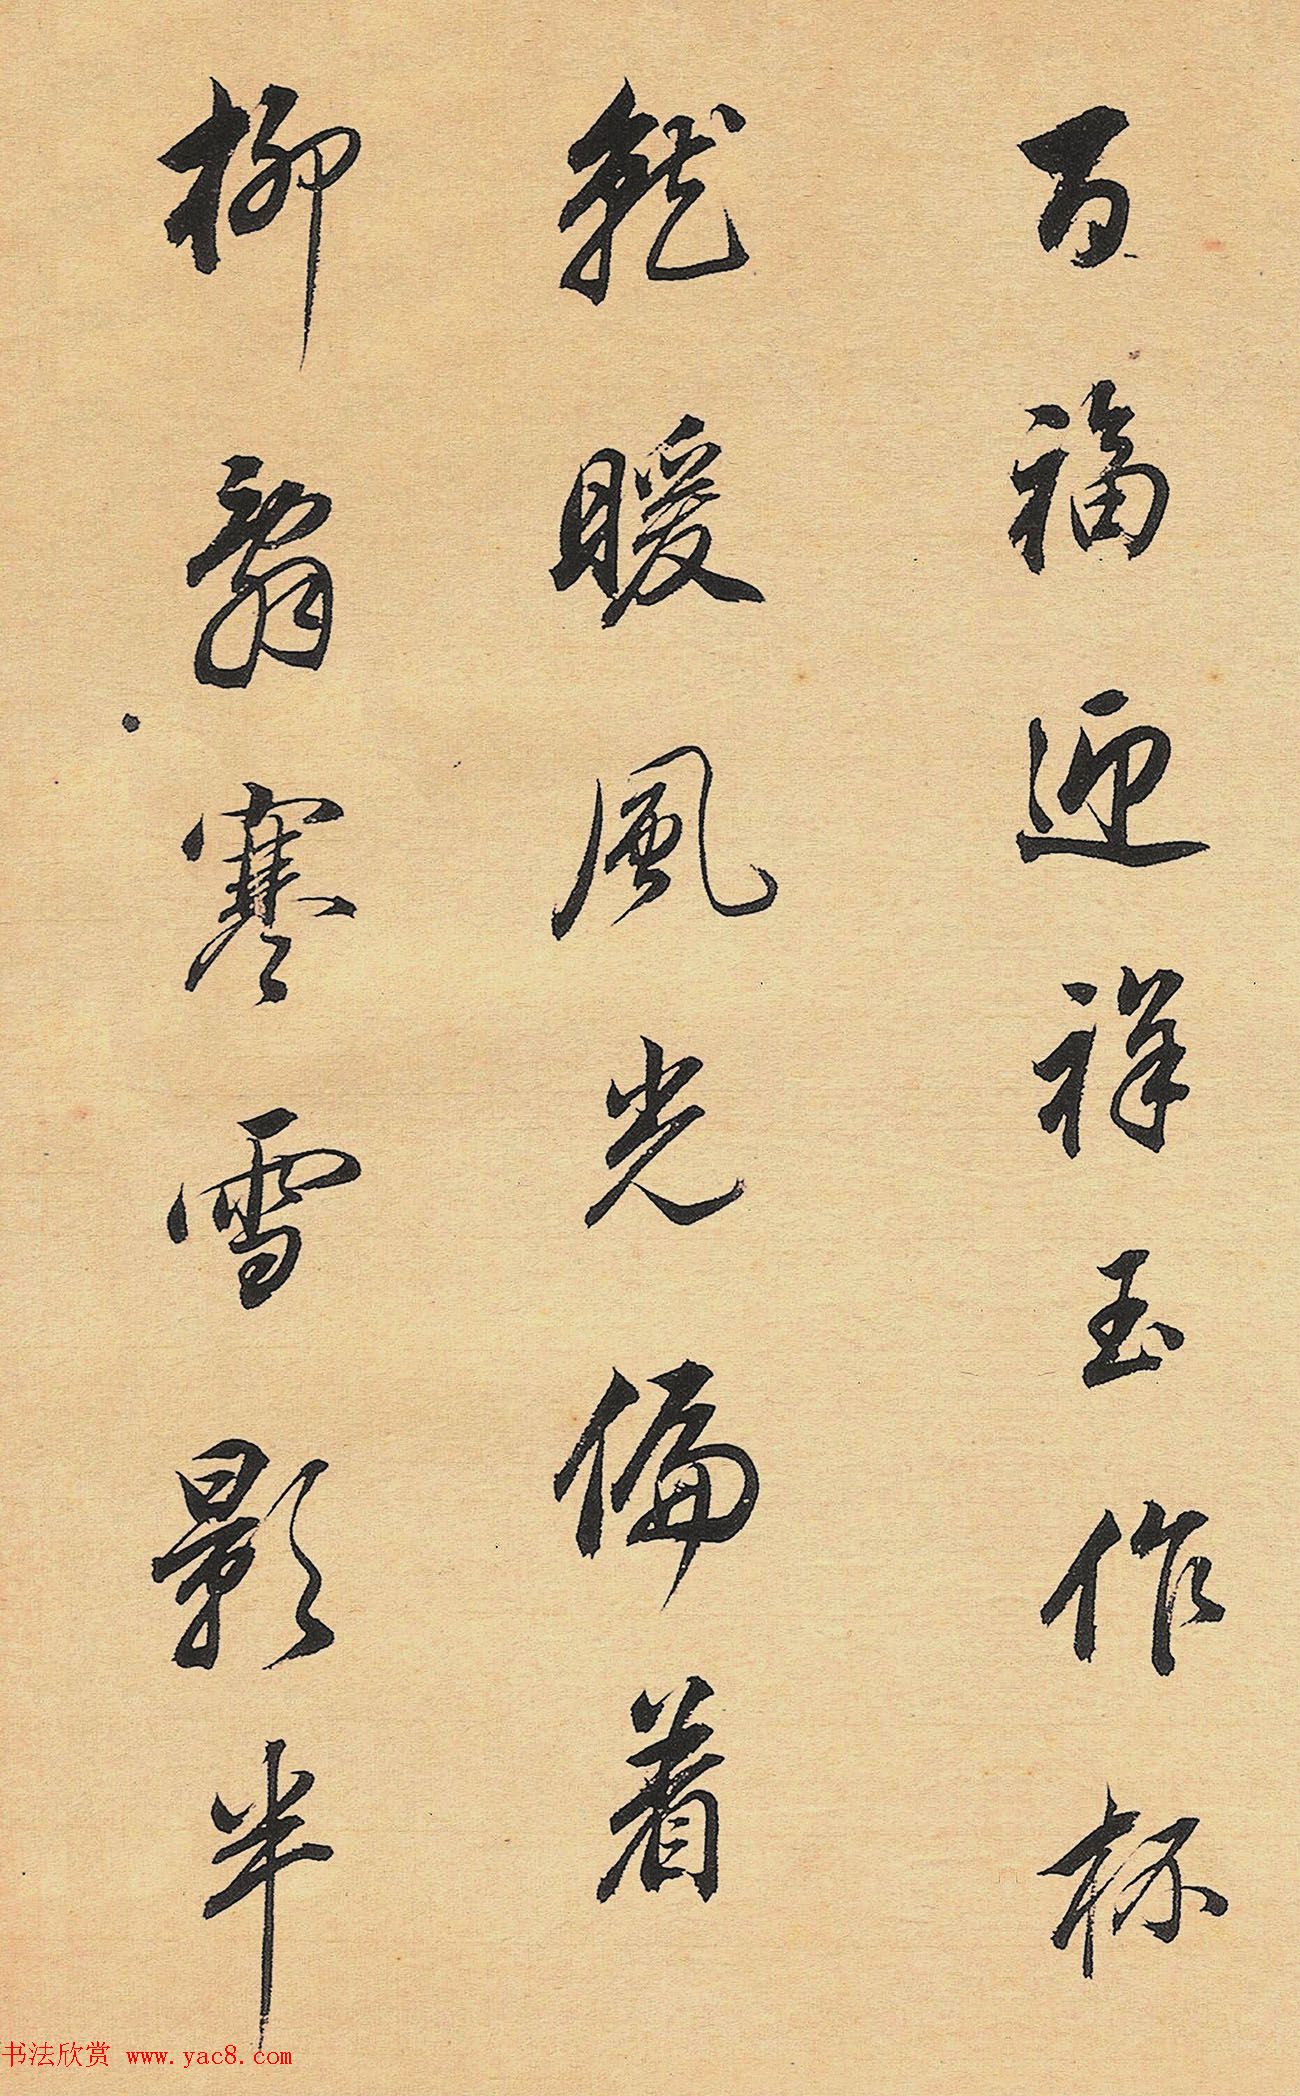 百福迎祥玉作杯
就暖風光偏着
柳辭寒雪影半
书法欣赏 www.yac8.com